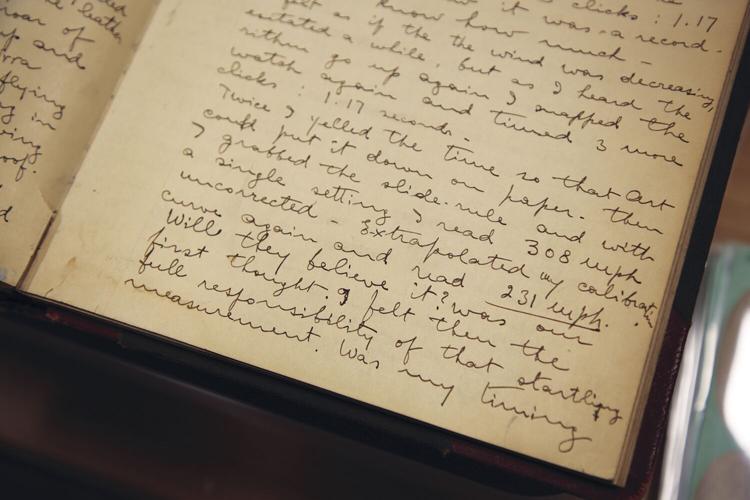 leather
roar of
and
flying
in
roof.
clicks : 1.17
it was a record.
know how much —
felt as if the the wind was decreasing,
a while, but as I heard the
go up again I snapped the
watch again and timed 3 more
clicks : 1.17 seconds -
Twice I yelled the time so that Art
could put it down on paper. Then
I grabbed the slide-rule and with
a single setting I read 308 mph
uncorrected - Extrapolated my calibration
curve again and read 231 mph.
Will they believe it? was our
first thought. I felt then the
full responsibility of that startling
measurement. Was my timing